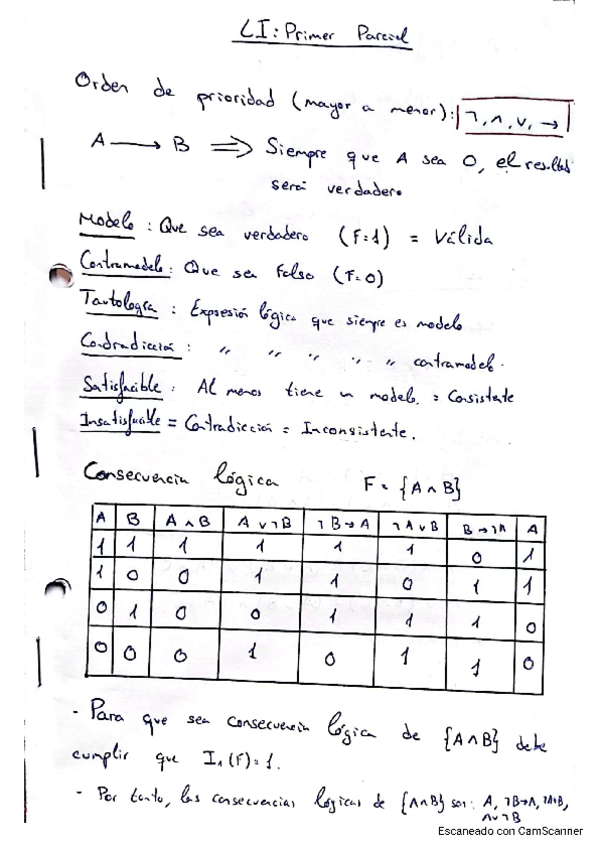 LI: Primer Parcial
Orden de prioridad (mayor a menor): ¬, ∧, ∨, →
A → B ⇒ Siempre que A sea 0, el resultado
será verdadero
Modelo : Que sea verdadero (F=1) = Válida
Contramodelo : Que sea falso (F=0)
Tautología : Expresión lógica que siempre es modelo
Contradicción : " " " " " contramodelo.
Satisfacible : Al menos tiene un modelo. = Consistente
Insatisfacible = Contradicción = Inconsistente.
Consecuencia lógica F = {A ∧ B}
A B A ∧ B A ∨ ¬B ¬B → A ¬A ∨ B B → ¬A A
1 1 1 1 1 1 0 1
1 0 0 1 1 0 1 1
0 1 0 0 1 1 1 0
0 0 0 1 0 1 1 0
- Para que sea consecuencia lógica de {A∧B} debe
cumplir que I₁(F)=1.
- Por tanto, las consecuencias lógicas de {A∧B} son: A, ¬B→A, ¬A∨B,
A∨¬B
Escaneado con CamScanner